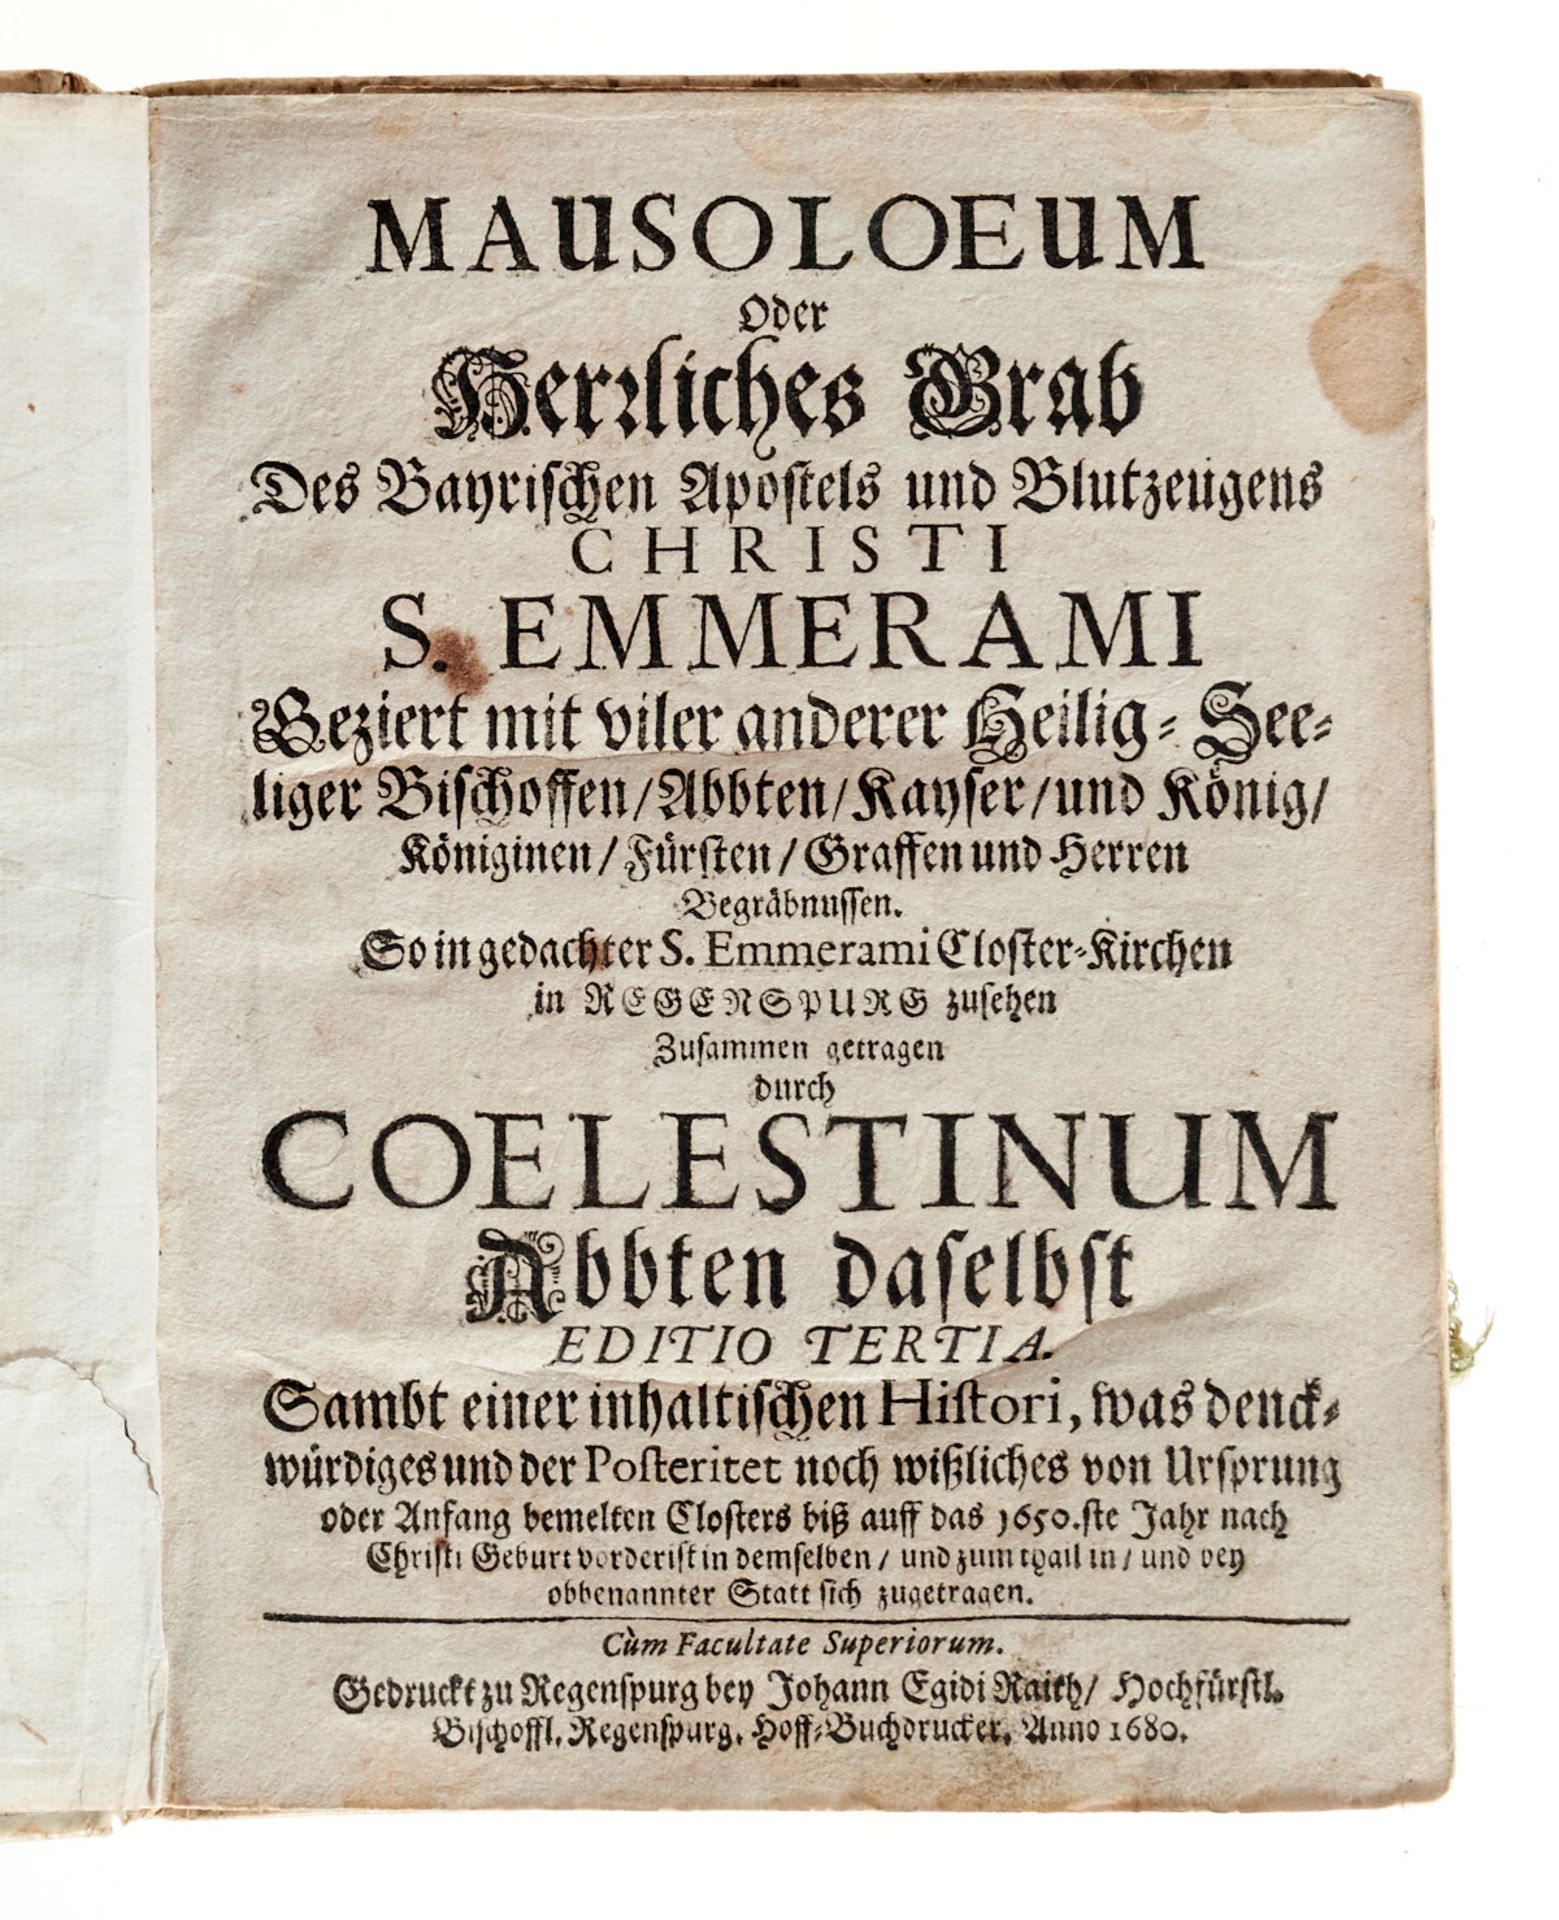 MAUSOLOEUM
Oder
Herrliches Grab
Des Bayrischen Apostels und Blutzeugens
CHRISTI
S. EMMERAMI
Geziert mit viler anderer Heilig- See-
liger Bischoffen/Abbten/Kayser/und König/
Königinen/Fürsten/Graffen und Herren
Begräbnussen.
So in gedachter S. Emmerami Closter-Kirchen
in REGENSPURG zusehen
Zusammen getragen
durch
COELESTINUM
Abbten daselbst
EDITIO TERTIA.
Sambt einer inhaltischen Histori, was denck-
würdiges und der Posteritet noch wißliches von Ursprung
oder Anfang bemelten Closters biß auff das 1650.ste Jahr nach
Christi Geburt vorderist in demselben/ und zum thail in/ und bey
obbenannter Statt sich zugetragen.
Cùm Facultate Superiorum.
Gedruckt zu Regenspurg bey Johann Egidi Raith/ Hochfürstl.
Bischoffl. Regenspurg. Hoff-Buchdrucker. Anno 1680.